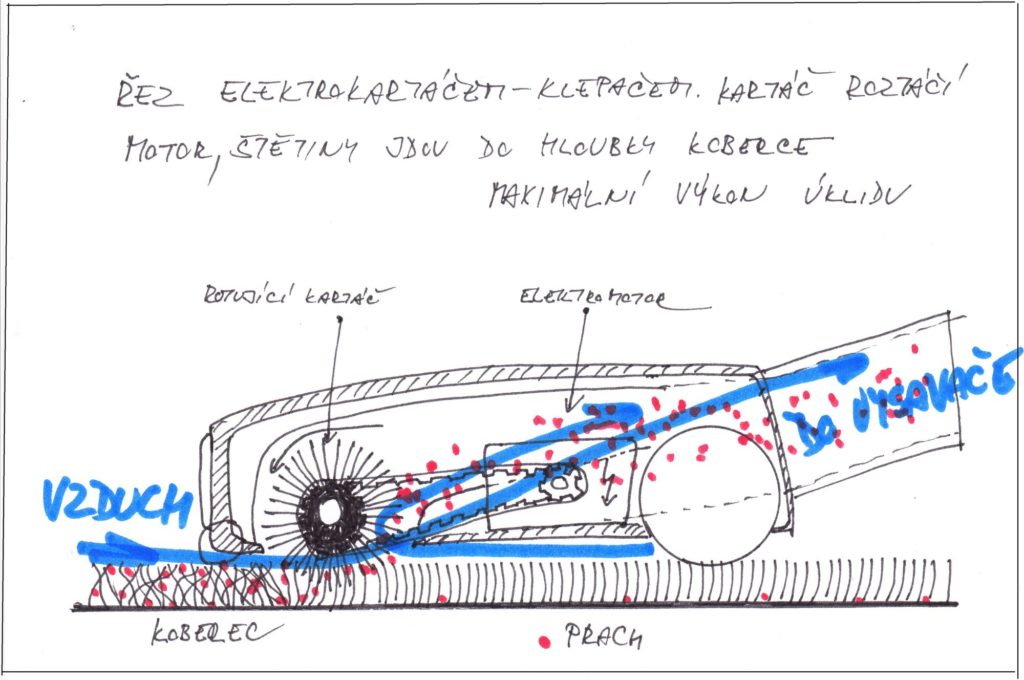 ŘEZ ELEKTROKARTÁČEM-KLEPAČEM. KARTÁČ ROZTÁČÍ
MOTOR, ŠTĚTINY JDOU DO HLOUBKY KOBERCE
MAXIMÁLNÍ VÝKON ÚKLIDU
ROTUJÍCÍ KARTÁČ
ELEKTROMOTOR
DO VYSAVAČE
VZDUCH
KOBEREC
PRACH